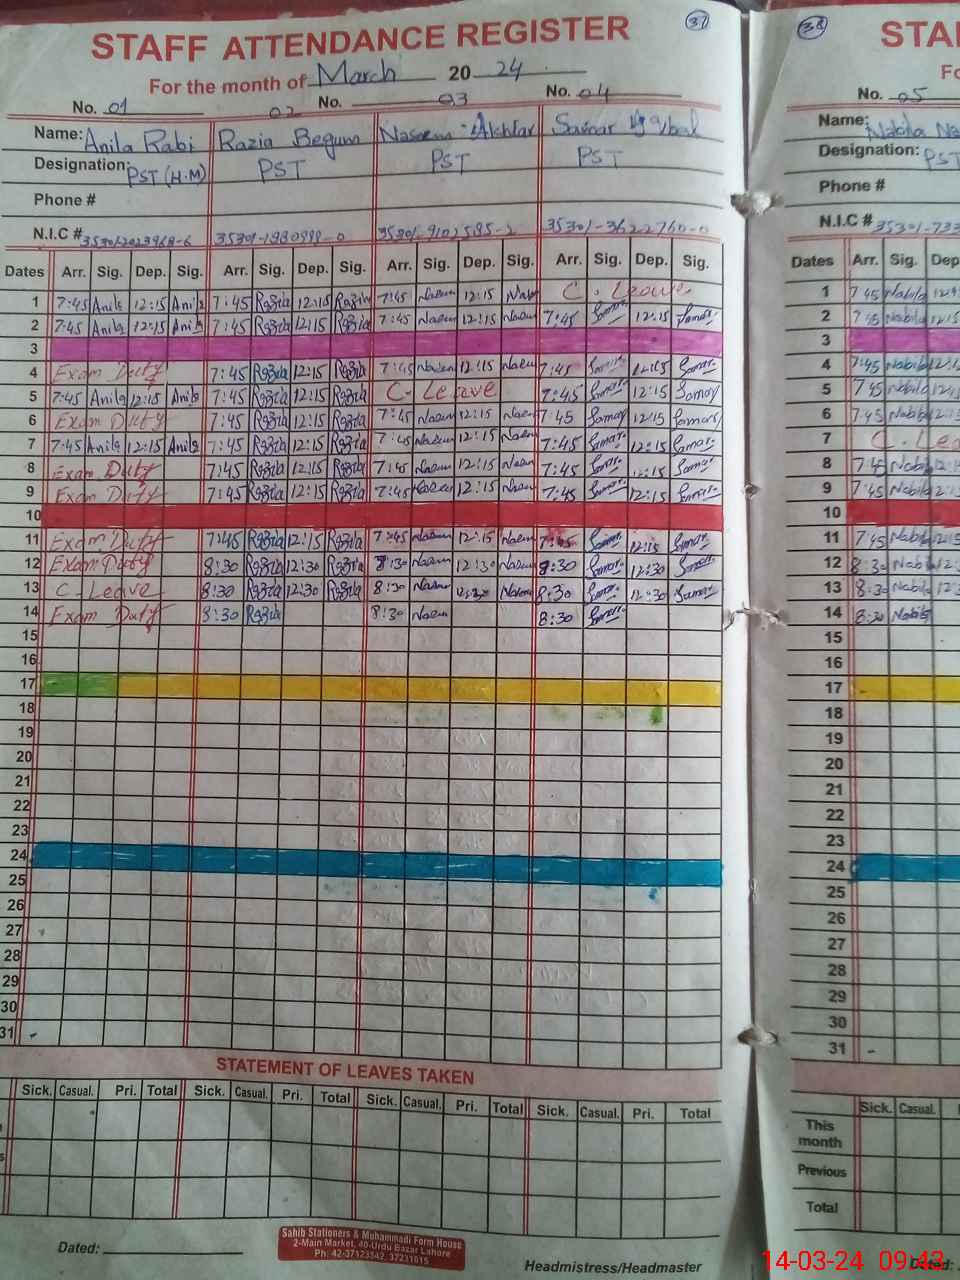 37
38
STAFF ATTENDANCE REGISTER
STA
For the month of March 20 24
No. 01 02 No. 03 No. 04
No. 05
Name: Anila Rabi Razia Begum Naseem Akhtar
Name: Nabila
Designation: PST (H.M) PST PST PST
Designation: PST
Phone #
Phone #
N.I.C #
N.I.C # 35301-733
Dates Arr. Sig. Dep. Sig. Arr. Sig. Dep. Sig. Arr. Sig. Dep. Sig. Arr. Sig. Dep. Sig.
Dates Arr. Sig. Dep
1 7:45 Anila 12:15 Anila 7:45 Razia 12:15 Razia 7:45 Naeem 12:15 C. Leave
2 7:45 Anila 12:15 Anila 7:45 Razia 12:15 Razia 7:45 Naeem 12:15 Naeem 7:45 Samar 12:15 Samar
3
4 Exam Duty 7:45 Razia 12:15 Razia 7:45 Naeem 12:15 Naeem 7:45 Samar 12:15 Samar
5 7:45 Anila 12:15 Anila 7:45 Razia 12:15 Razia C. Leave 7:45 Samar 12:15 Samar
6 Exam Duty 7:45 Razia 12:15 Razia 7:45 Naeem 12:15 Naeem 7:45 Samar 12:15 Samar
7 7:45 Anila 12:15 Anila 7:45 Razia 12:15 Razia 7:45 Naeem 12:15 Naeem 7:45 Samar 12:15 Samar
8 Exam Duty 7:45 Razia 12:15 Razia 7:45 Naeem 12:15 Naeem 7:45 Samar 12:15 Samar
9 Exam Duty 7:45 Razia 12:15 Razia 7:45 Naeem 12:15 Naeem 7:45 Samar 12:15 Samar
10
11 Exam Duty 7:45 Razia 12:15 Razia 7:45 Naeem 12:15 Naeem 7:45 Samar 12:15 Samar
12 Exam Duty 8:30 Razia 12:30 Razia 8:30 Naeem 12:30 Naeem 8:30 Samar 12:30 Samar
13 C. Leave 8:30 Razia 12:30 Razia 8:30 Naeem 12:30 Naeem 8:30 Samar 12:30 Samar
14 Exam Duty 8:30 Razia 8:30 Naeem 8:30 Samar
15
16
17
18
19
20
21
22
23
24
25
26
27
28
29
30
31
1 7:45 Nabila
2 7:45 Nabila 12:15
3
4 7:45 Nabila 12:15
5 7:45 Nabila
6 7:45 Nabila 12:15
7 C. Lea
8 7:45 Nabila
9 7:45 Nabila
10
11 7:45 Nabila
12 8:30 Nabila
13 8:30 Nabila
14 8:30 Nabila
15
16
17
18
19
20
21
22
23
24
25
26
27
28
29
30
31
STATEMENT OF LEAVES TAKEN
Sick. Casual. Pri. Total Sick. Casual. Pri. Total Sick. Casual. Pri. Total Sick. Casual. Pri. Total
Sick. Casual.
This month
Previous
Total
Dated:
Sahib Stationers & Muhammadi Form House
2-Main Market, 40-Urdu Bazar Lahore
Ph: 42-37123342, 37231015
Headmistress/Headmaster
Dated:
14-03-24 09:43